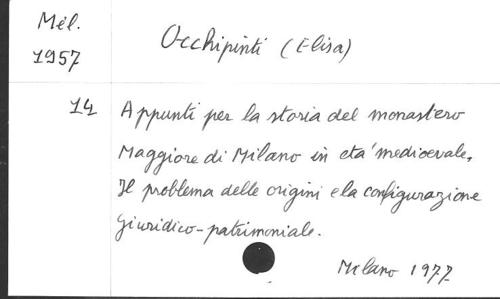 Mél.
1957
Occhipinti (Elisa)
14 Appunti per la storia del monastero
Maggiore di Milano in età medioevale.
Il problema delle origini e la configurazione
giuridico-patrimoniale.
Milano 1977